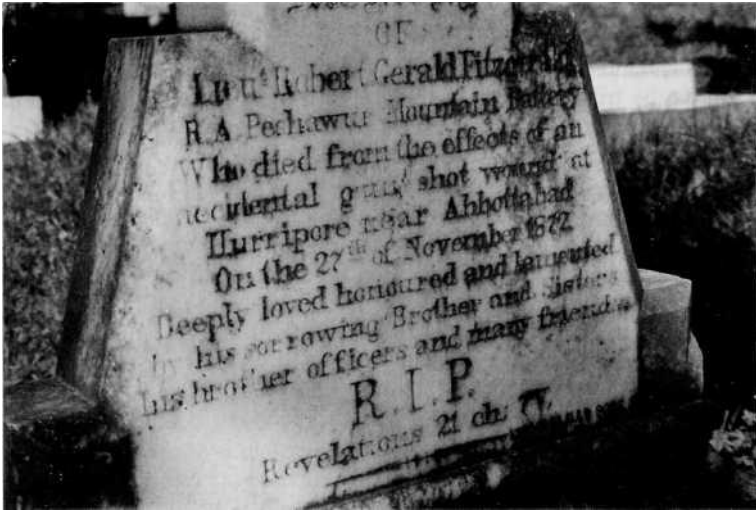 OF
Lieut. Robert Gerald Fitzgerald
R.A. Peshawur Mountain Battery
Who died from the effects of an
accidental gun shot wound at
Hurripore near Abbottabad
On the 27th of November 1872
Deeply loved honoured and lamented
by his sorrowing Brother and Sisters
his brother officers and many friends
R.I.P.
Revelations 21 ch: